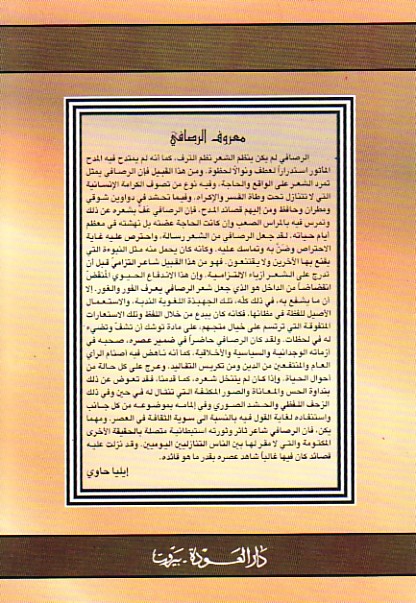 معروف الرصافي
الرصافي لم يكن ينظم الشعر نظم الترف، كما انه لم يمتدح فيه المدح
المأثور استدراراً لعطف ونوالاً لحظوة. ومن هذا القبيل فإن الرصافي يمثل
تمرد الشعر على الواقع والحاجة، وفيه نوع من تصوف الكرامة الإنسانية
التي لا تتنازل تحت وطأة القسر والإكراه. وفيما تحتشد في دواوين شوقي
ومطران وحافظ ومن إليهم قصائد المدح، فإن الرصافي عفّ بشعره عن ذلك
وتمرس فيه بالمراس الصعب وإن كانت الحاجة عضته بل نهشته في معظم
أيام حياته. لقد جعل الرصافي من الشعر رسالة، واحترص عليه غاية
الاحتراص وضنّ به وتماسك عليه، وكأنه كان يحمل منه مثل النبوءة التي
يقنع بها الآخرين ولا يقتنعون. فهو من هذا القبيل شاعر التزامي قبل أن
تدرج على الشعر أزياء الإلتزامية. وإن هذا الاندفاع الحيوي المنقضّ
انقضاضاً من الداخل هو الذي جعل شعر الرصافي يعرف الفور والغور، إلا
أن ما يشفع به، في ذلك كله، تلك الجهبذة اللغوية الندية، والاستعمال
الأصيل للفظة في مظانها، فكأنه كان يبدع من خلال اللفظ وتلك الاستعارات
المتفوقة التي ترتسم على خيال متجهم، على مادة توشك أن تشفّ وتضيء
له في لحظات. ولقد كان الرصافي حاضراً في ضمير عصره، صحبه في
أزماته الوجدانية والسياسية والأخلاقية، كما أنه ناهض فيه أصنام الرأي
العام والمنتفعين من الدين ومن تكريس التقاليد، وعرج على كل حالة من
أحوال الحياة، وإذا كان لم ينتخل شعره، كما قدمنا، فقد تعوض عن ذلك
بنداوة الحس والمعاناة والصور المكثفة التي تنثال له في حين وفي ذلك
الزحف اللفظي والحشد الصوري وفي إلمامه بموضوعه من كل جانب
واستنفاده لغاية القول فيه بالنسبة الى سوية الثقافة في العصر، ومهما
يكن، فإن الرصافي شاعر ثائر وثورته استبطانية متصلة بالحقيقة الأخرى
المكتومة والتي لا مقر لها بين الناس التنازليين اليوميين. وقد نزلت عليه
قصائد كان فيها غالباً شاهد عصره بقدر ما هو قائده.
إيليا حاوي
دار العودة - بيروت